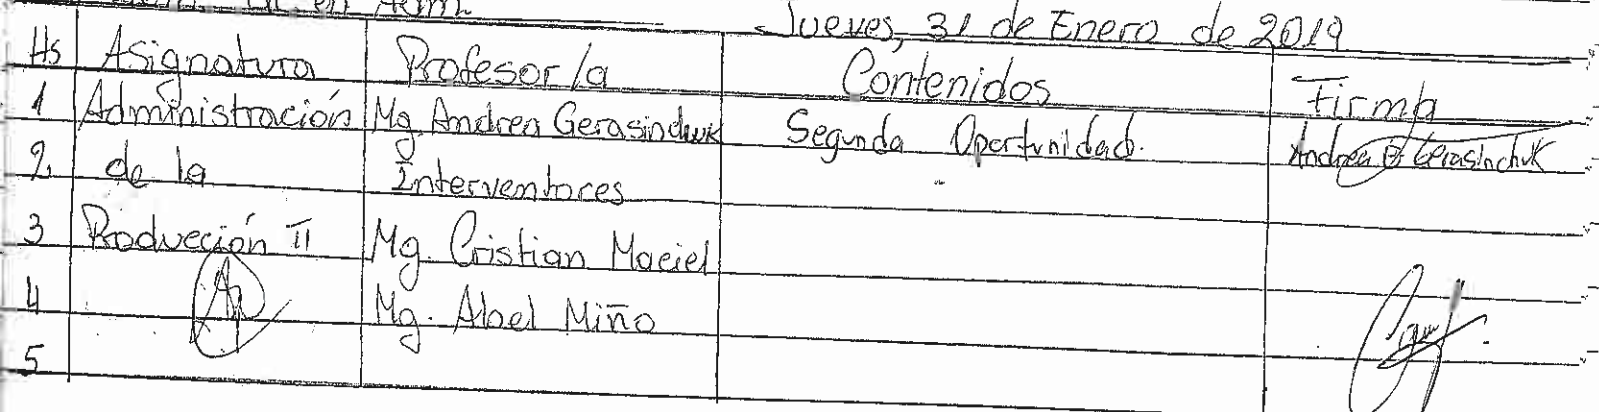 Jueves, 31 de Enero de 2019
Hs Asignatura Profesor/a Contenidos Firma
1 Administración Mg. Andrea Gerasinchuk Segunda Oportunidad. Andrea Gerasinchuk
2 de la Interventores
3 Producción II Mg. Cristian Maciel
4 Mg. Abel Miño
5